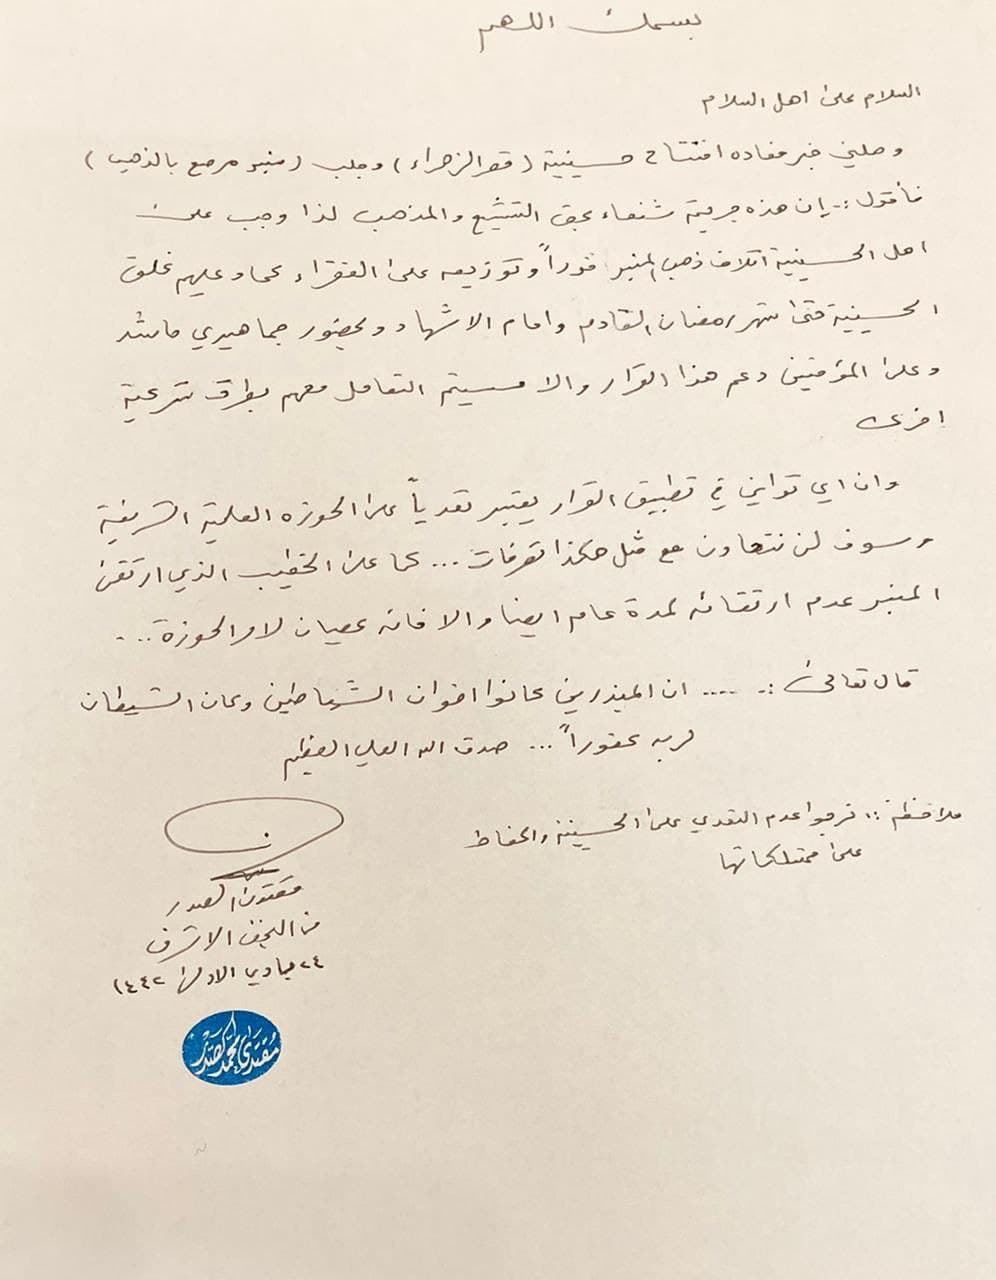 بسمك اللهم
السلام على اهل السلام
وصلني خبر مفاده افتتاح حسينية (قصر الزهراء) وجلب (منبر مرصع بالذهب)
فأقول :ـ إن هذه جريمة شنعاء بحق التشيع والمذهب لذا وجب على
اهل الحسينية اتلاف ذهب المنبر فوراً وتوزيعه على الفقراء كما وعليهم غلق
الحسينية حتى شهر رمضان القادم وامام الاشهاد وبحضور جماهيري حاشد
وعلى المؤمنين دعم هذا القرار والا سيتم التعامل معهم بطرق شرعية
اخرى
وان اي توانٍ في تطبيق القرار يعتبر تعدياً على الحوزه العلمية الشريفة
وسوف لن نتهاون مع مثل هكذا تصرفات ... كما على الخطيب الذي ارتقى
المنبر عدم ارتقائه لمدة عام ايضا والا فانه عصيان لاوامر الحوزة ...
قال تعالى :ـ .... ان المبذرين كانوا اخوان الشياطين وكان الشيطان
لربه كفوراً ... صدق الله العلي العظيم
ملاحظة :: نرجوا عدم التعدي على الحسينية والحفاظ
على ممتلكاتها
مقتدى الصدر
من النجف الاشرف
٢٤ جمادي الاولى ١٤٤٢
مقتدى محمد الصدر